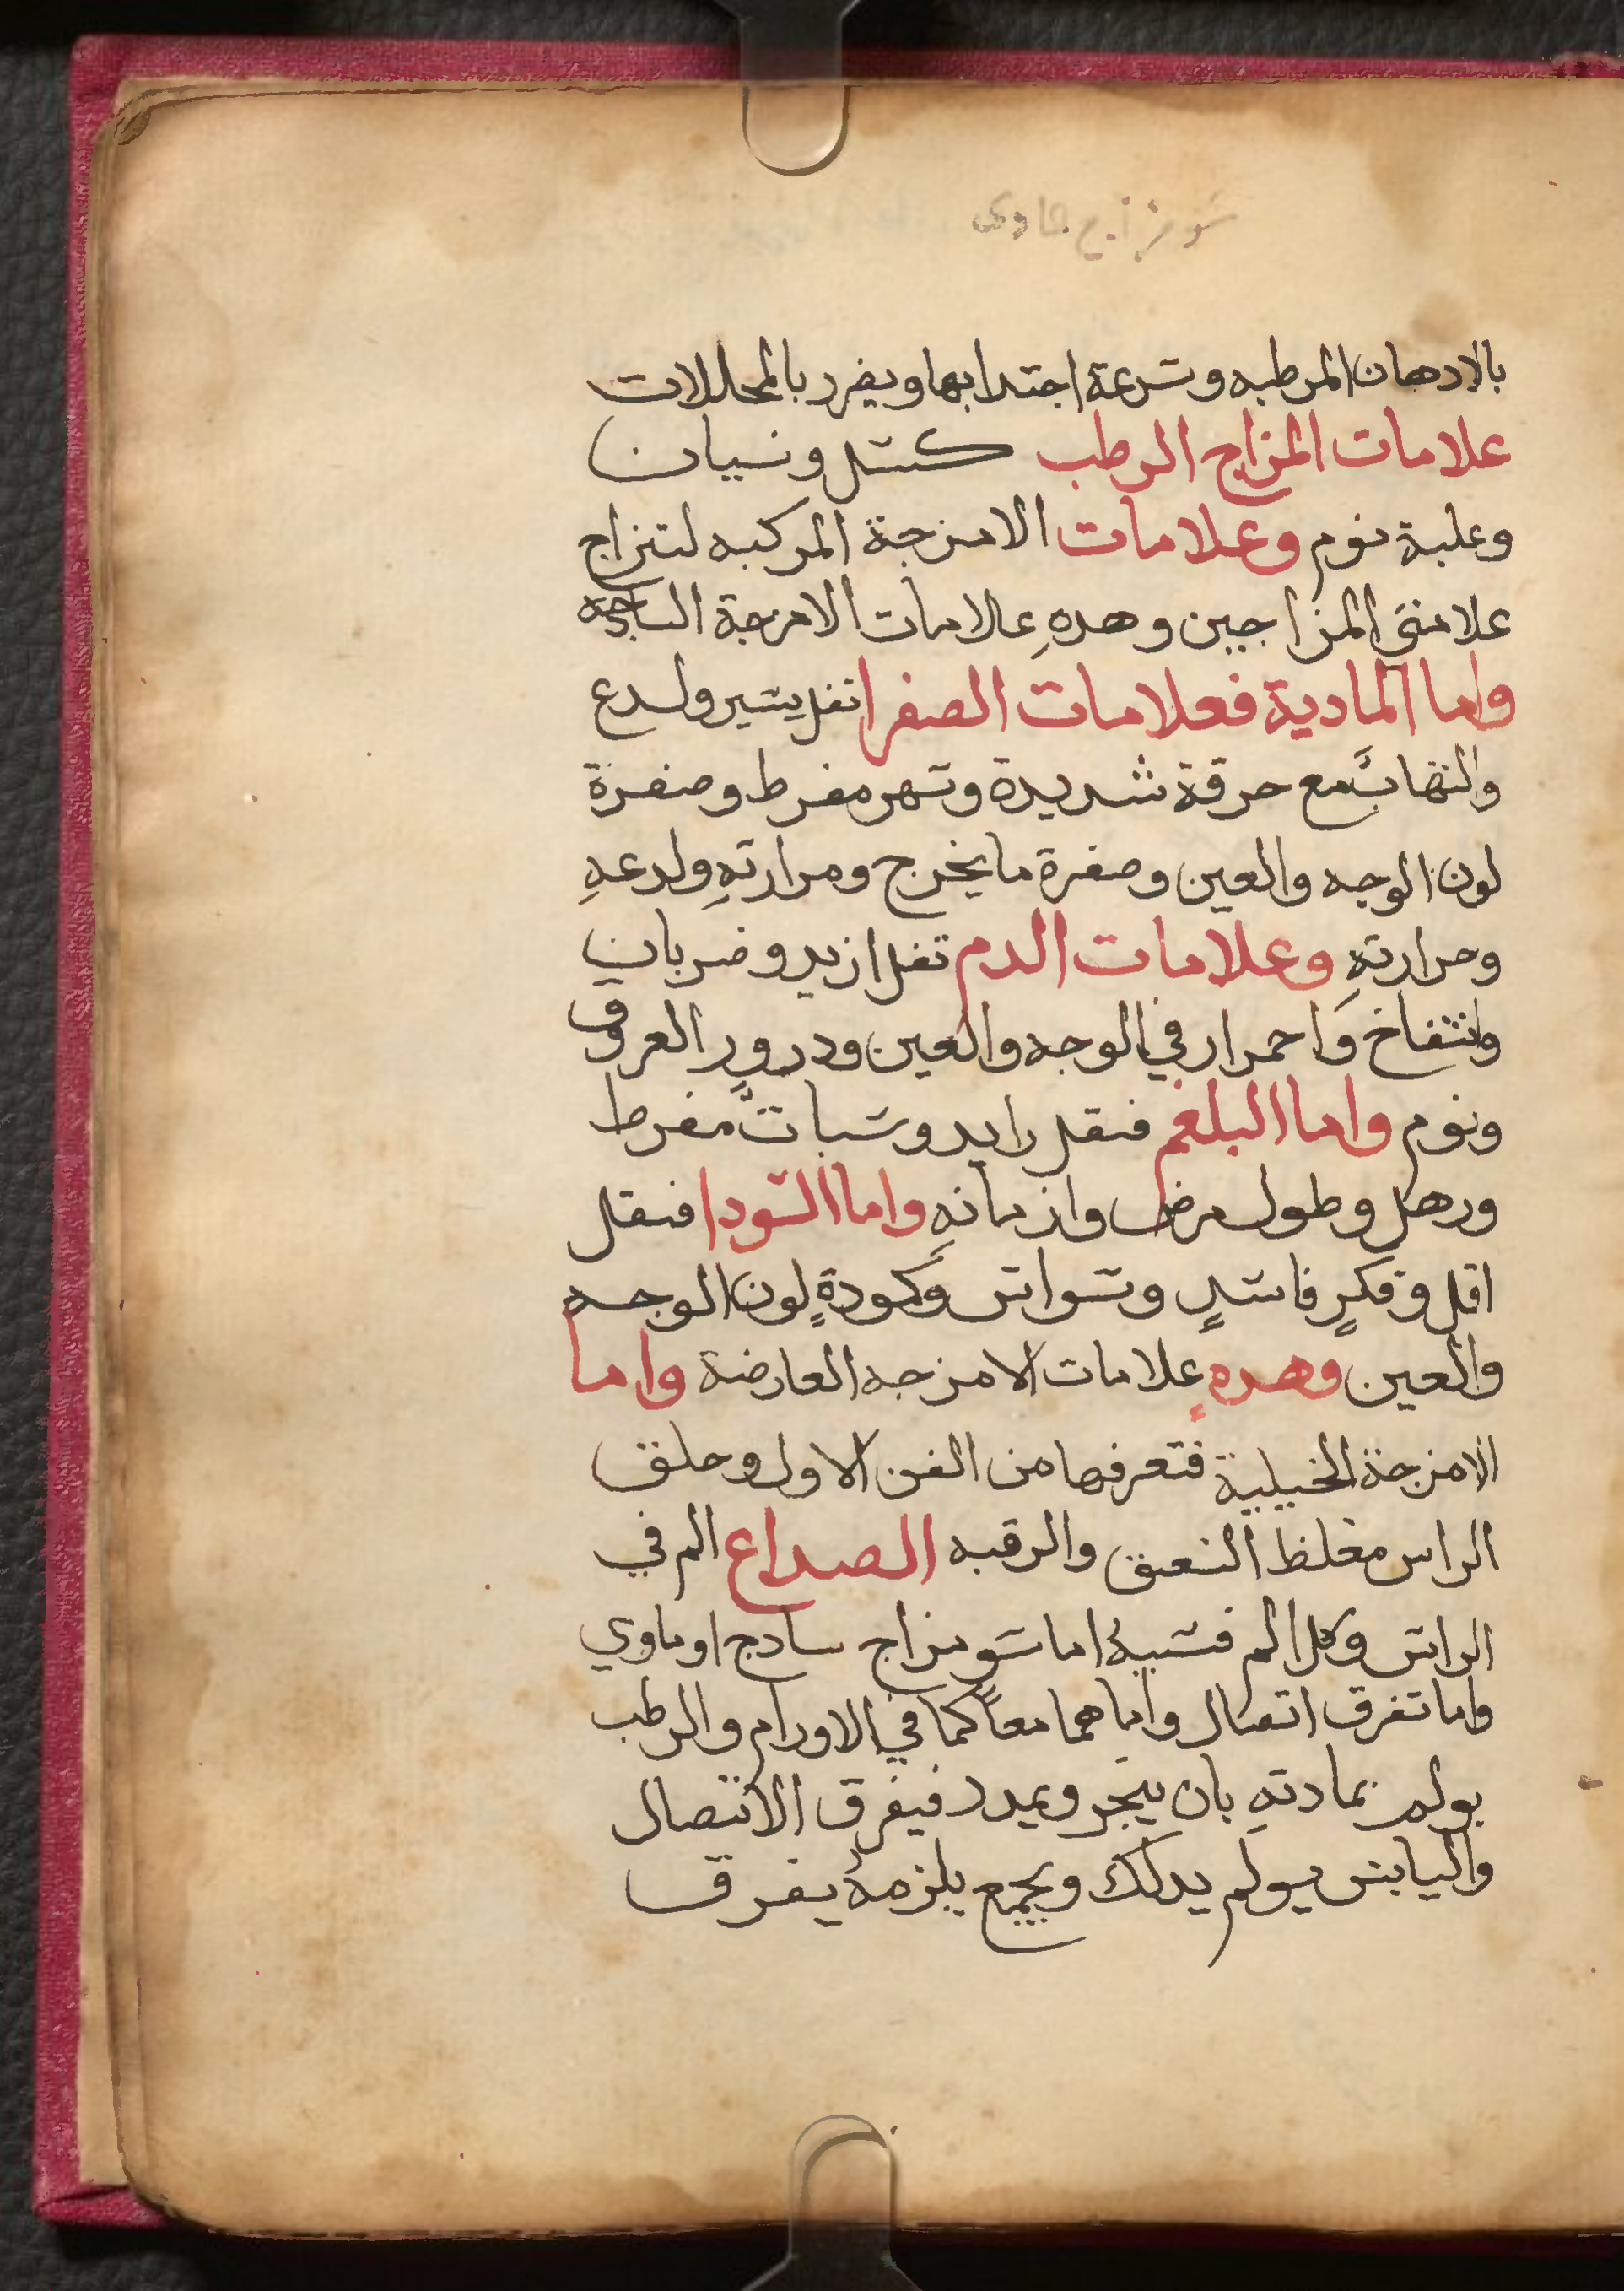 سو مزاج مادي
بالادهان المرطبه وسرعة اجتدابها ويضرر بالمحللات
علامات المزاج الرطب كسل ونسيان
وغلبة نوم وعلامات الامزجة المركبه امتزاج
علامتي المزاجين وهدهِ علامات الامزجة الساجه
واما المادية فعلامات الصفرا ثقل يسير ولدع
والتهابٌ مع حرقة شديدة وسهر مفرط وصفرة
لون الوجه والعين وصفرة ما يخرج ومرارتهِ ولدعهِ
وحرارتهِ وعلامات الدم ثقل ازيد وضربان
وانتفاخ واحمرار في الوجه والعين ودرور العروق
ونوم واما البلغم فثقل زايد وسباتٌ مفرط
ورهل وطول مرض وازمانهِ واما السودا فثقل
اقل وفكرٍ فاسدٍ وسواس وكمودةٍ لون الوجه
والعين وهده علامات الامزجه العارضة واما
الامزجة الجبلية فتعرفها من الفن الاول وخلق
الراس مغلظ العنق والرقبه الصداع الم في
الراس وكل الم فسببهُ اما سو مزاج سادج او مادي
واما تفرق اتصال واما هما معاً كما في الاورام والرطب
يولم بمادتهِ بان يبخر ويمدد فيفرق الاتصال
واليابس يولم بدلك ويجمع يلزمهُ يفرق